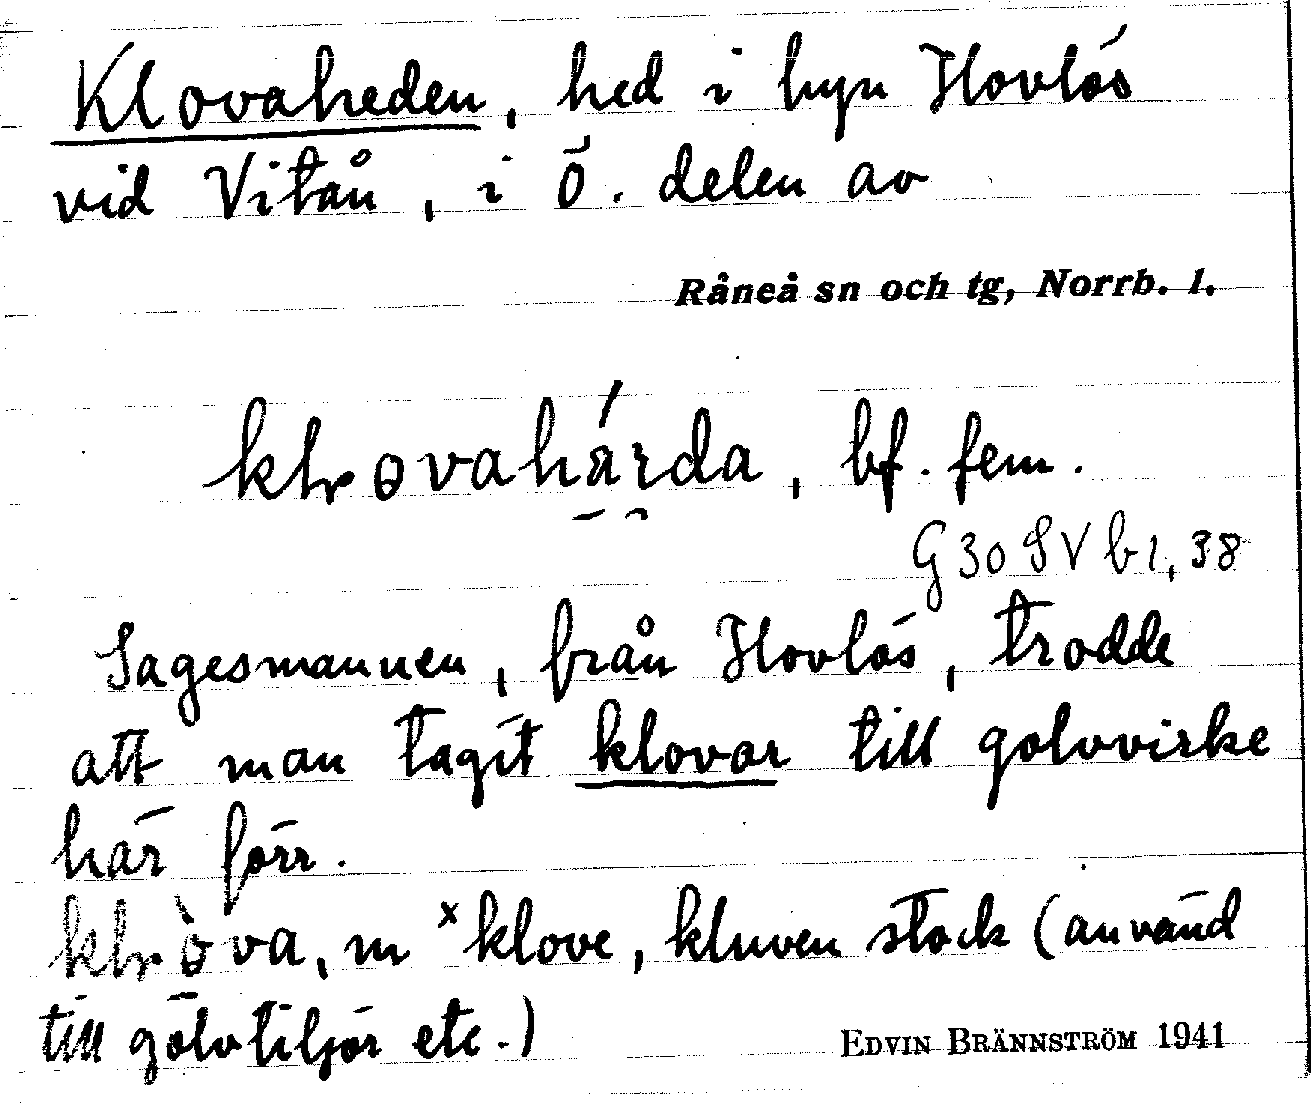 Klovaheden, hed i byn Hovlös
vid Vitån, i Ö. delen av
Råneå sn och tg, Norrb. l.
bf. fem.
G 30 S V b 1, 38
Sagesmannen, från Hovlös, trodde
att man tagit klovar till golvvirke
här förr.
m ˣklove, kluven stock (använd
till golvtiljor etc.)
EDVIN BRÄNNSTRÖM 1941